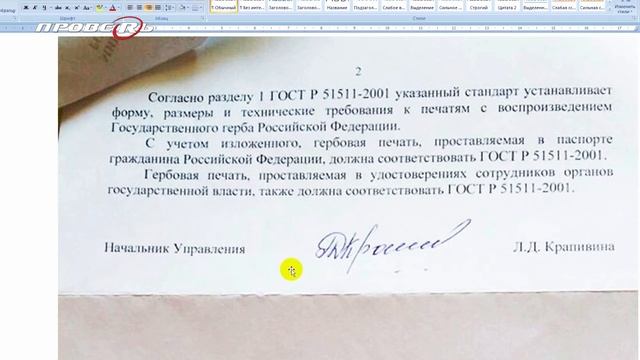 ПРОВЕRЬ
Шрифт
Абзац
Стили
¶ Обычный
¶ Без инте...
Заголово...
Заголово...
Название
Подзагол...
Слабое в...
Выделение
Сильное ...
Строгий
Цитата 2
Выделенн...
Слабая сс...
Сильная с...
Изменить
стили
2
Согласно разделу 1 ГОСТ Р 51511-2001 указанный стандарт устанавливает
форму, размеры и технические требования к печатям с воспроизведением
Государственного герба Российской Федерации.
С учетом изложенного, гербовая печать, проставляемая в паспорте
гражданина Российской Федерации, должна соответствовать ГОСТ Р 51511-2001.
Гербовая печать, проставляемая в удостоверениях сотрудников органов
государственной власти, также должна соответствовать ГОСТ Р 51511-2001.
Начальник Управления
Л.Д. Крапивина